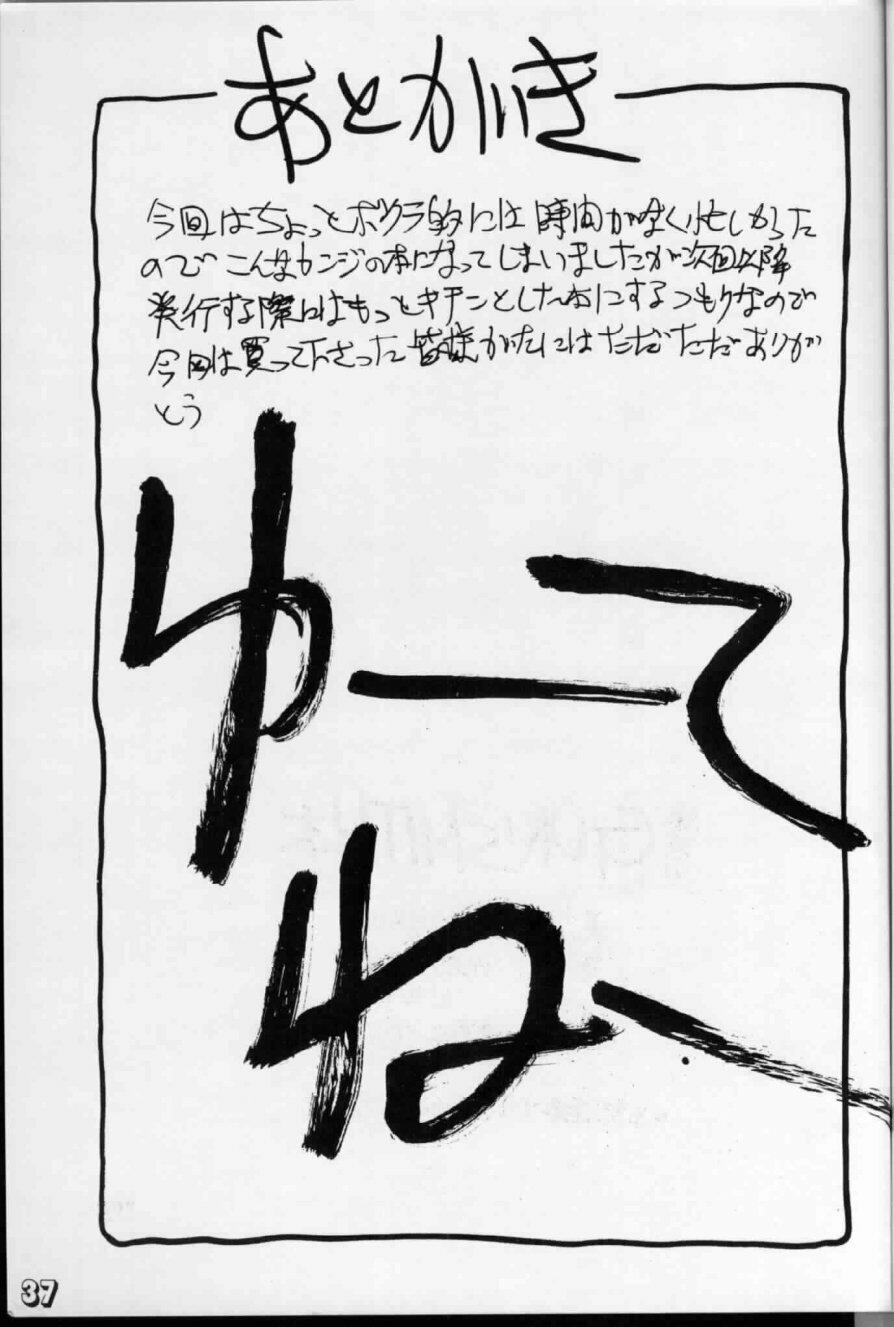 あとがき
今回はちょっとボクラ的には時間がなく忙しかった
のでこんなカンジの本になってしまいましたが次回以降
発行する際にはもっとキチンとした本にするつもりなので
今回は買って下さった皆様がたにはただただありが
とう
ゆーて
ねー
37